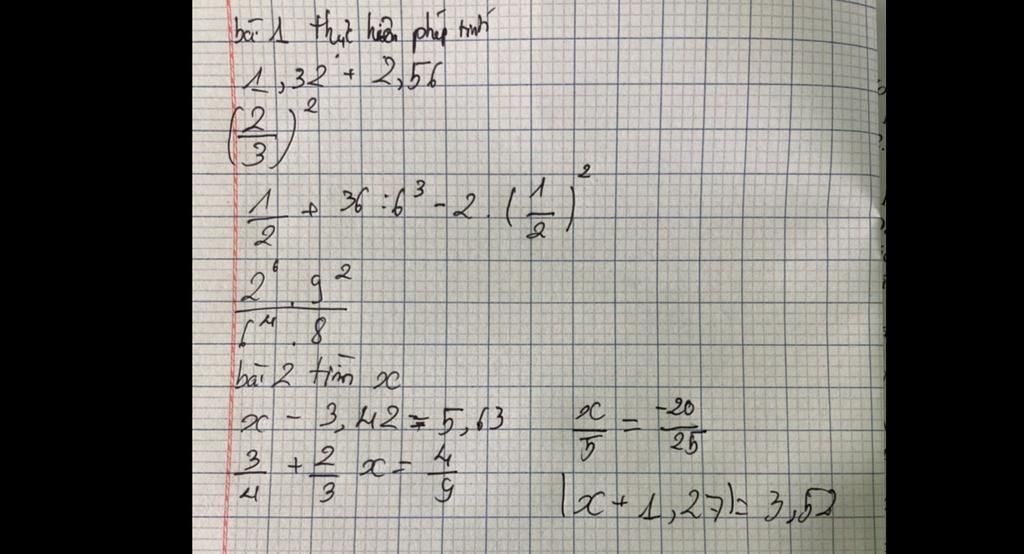 bài 1 thực hiện phép tính
1,32 + 2,56
(2/3)²
1/2 + 36 : 6³ - 2 . (1/2)²
2⁶ . 9² / 6⁴ . 8
bài 2 tìm x
x - 3,42 = 5,63
x/5 = -20/25
3/4 + 2/3 x = 4/9
|x + 1,27| = 3,52